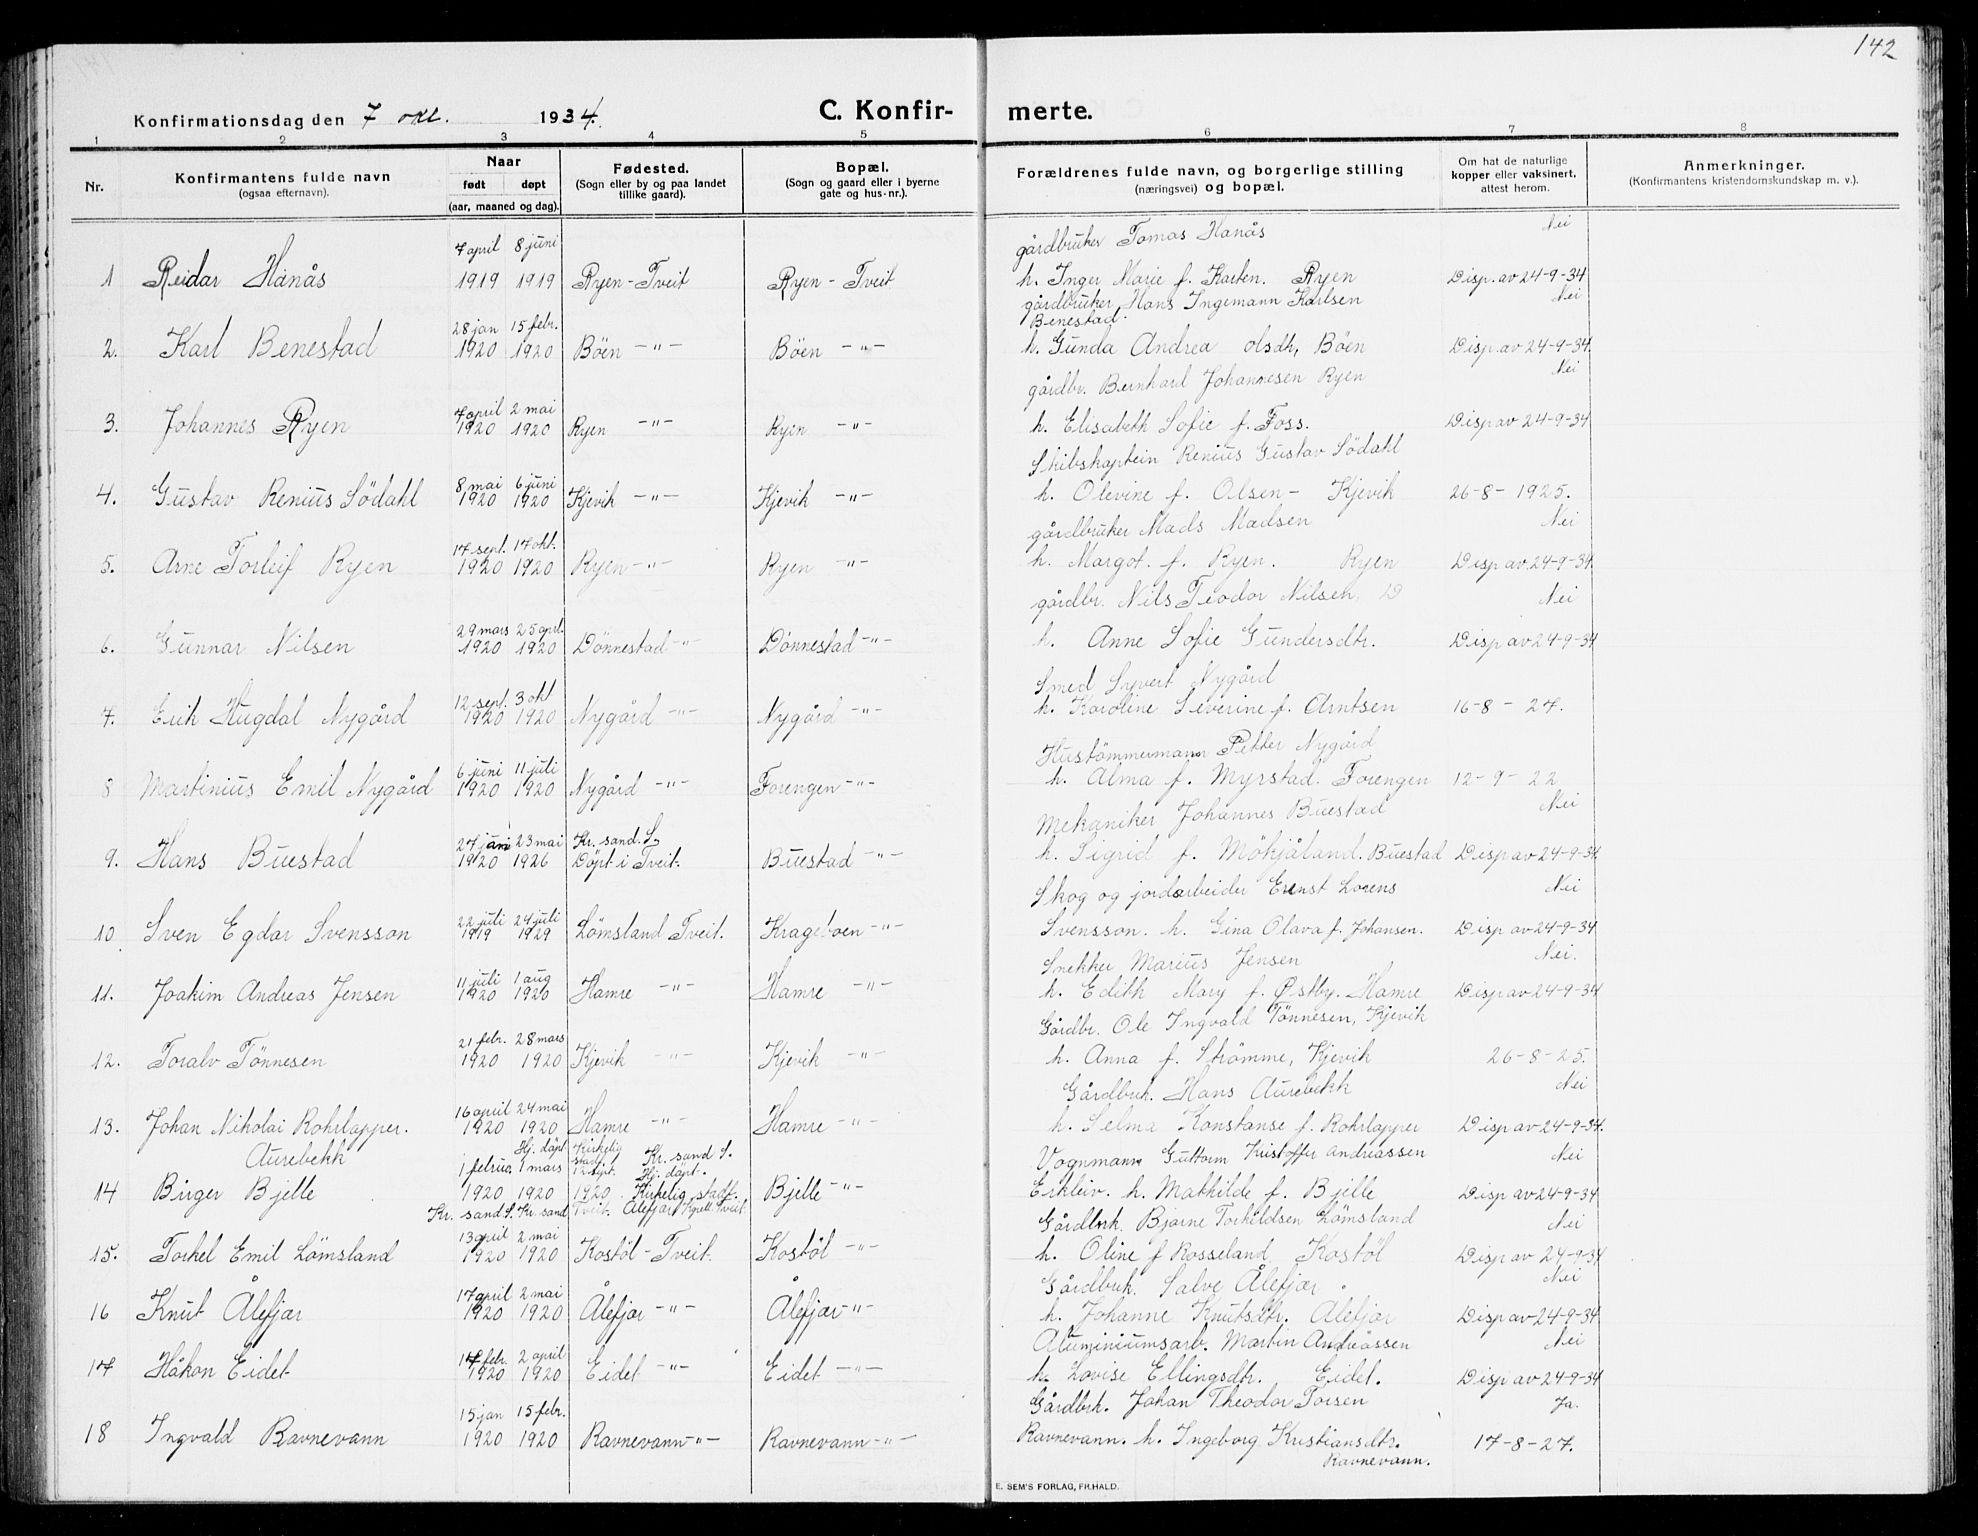 142
Konfirmationsdag den 7 okt. 1934.
C. Konfirmerte.
1 2 3 4 5 6 7 8
Nr.
Konfirmantens fulde navn
(ogsaa efternavn).
Naar
født døpt
(aar, maaned og dag).
Fødested.
(Sogn eller by og paa landet
tillike gaard).
Bopæl.
(Sogn og gaard eller i byerne
gate og hus-nr.).
Forældrenes fulde navn, og borgerlige stilling
(næringsvei) og bopæl.
Om hat de naturlige
kopper eller vaksinert,
attest herom.
Anmerkninger.
(Konfirmantens kristendomskundskap m. v.).
7 april 8 juni gårdbruker Tomas Hanås Nei
1 Reidar Hanås 1919 1919 Ryen - Tveit Ryen - Tveit h. Inger Marie f. Karten. Ryen Disp. av 24-9-34
gårdbruker Hans Ingemann Karlsen Nei
28 jan 15 febr. Benestad.
2. Karl Benestad 1920 1920 Böen -"- Böen -"- h. Gunda Andrea olsdtr, Böen Disp. av 24-9-34.
7 april 2 mai gårdbr. Bernhard Johannesen Ryen Nei
3. Johannes Ryen 1920 1920 Ryen -"- Ryen -"- h. Elisabeth Sofie f. Foss. Disp av 24-9-34
8 mai 6 juni Skibskaptein Renius Gustav Södahl
4. Gustav Renius Södahl 1920 1920 Kjevik -"- Kjevik -"- h. Olevine f. Olsen - Kjevik 26-8-1925.
17 sept. 17 okt. gårdbruker Mads Madsen Nei
5. Arne Torleif Ryen 1920 1920 Ryen -"- Ryen -"- h. Margot. f. Ryen. Ryen Disp av 24-9-34
29 mars 25 aprl. gårdbr. Nils Teodor Nilsen. D Nei
6. Gunnar Nilsen 1920 1920 Dönnestad -"- Dönnestad -"- h. Anne Sofie Gundersdtr. Disp av 24-9-34
12 sept. 3 okt Smed Syvert Nygård
7. Erik Hugdal Nygård 1920 1920 Nygård -"- Nygård -"- h. Karoline Severine f. Arntsen 16-8-27.
6 juni 11 juli Hustömmermann Petter Nygård
8 Martinius Emil Nygård 1920 1920 Nygård -"- Forengen -"- h. Alma f. Myrstad. Forengen 12-9-22
27 juni 23 mai Kr. sand. S. Mekaniker Johannes Buestad Nei
9. Hans Buestad 1920 1926 Döpt i Tveit. Buestad -"- h. Sigrid f. Mökjåland. Buestad Disp av 24-9-34.
22 juli 24 juli Skog og jordarbeider Ernst Lorens Nei
10 Sven Egdar Svensson 1919 1929 Lömsland Tveit. Krageboen -"- Svensson. h. Gina Olava f. Johansen. Disp av 24-9-34
11 juli 1 aug Snekker Marius Jensen Nei.
11. Joakim Andreas Jensen 1920 1920 Hamre -"- Hamre -"- h. Edith Mary f. Østby. Hamre Disp av 24-9-34
21 febr. 28 mars Gårdbr. Ole Ingvald Tönnesen, Kjevik
12. Toralv Tönnesen 1920 1920 Kjevik -"- Kjevik -"- h. Anna f. Strömme, Kjevik 26-8-25.
16 april 24 mai Gårdbrk. Hans Aurebekk Nei
13. Johan Nikolai Rohrlapper. 1920 1920 Hamre -"- Hamre -"- h. Selma Konstanse f. Rohrlapper Disp av 24-9-34.
Aurebekk Hj. döpt Kirkelig Kr. sand S.
1 februa. 1 mars Hj. döpt. Vognmann Guttorm Kristoffer Andreassen Nei
14 Birger Bjelle 1920 1920 1920. Kirkelig stadf. Bjelle -"- Erkleiv. h. Mathilde f. Bjelle Disp av 24-9-34
Kr. sand S. Kr. sand Tveit. Ålefjær Kpell. Tveit.
13 april 2 mai Gårdbrk. Bjarne Torkeldsen Lömsland Nei
15. Torkel Emil Lömsland 1920 1920 Kostöl - Tveit. Kostöl -"- h. Oline f Rosseland Kostöl Disp av 24-9-34
17 april 2 mai Gårdbrk. Salve Ålefjær Nei
16 Knut Ålefjær 1920 1920 Ålefjær -"- Ålefjær -"- h. Johanne Knutsdtr. Ålefjær Disp av 24-9-34
17 febr. 2 april Aluminiumsarb. Martin Andreassen Nei
17 Håkon Eidet 1920 1920 Eidet -"- Eidet -"- h. Lovise Ellingsdtr. Eidet. Disp av 24-9-34
15 jan 15 febr. Gårdbrk. Johan Theodor Torsen Ja.
18 Ingvald Ravnevann 1920 1920 Ravnevann -"- Ravnevann -"- Ravnevann. h. Ingeborg Kristiansdtr. 17-8-27.
Ravnevann.
E. SEM'S FORLAG, FR.HALD.